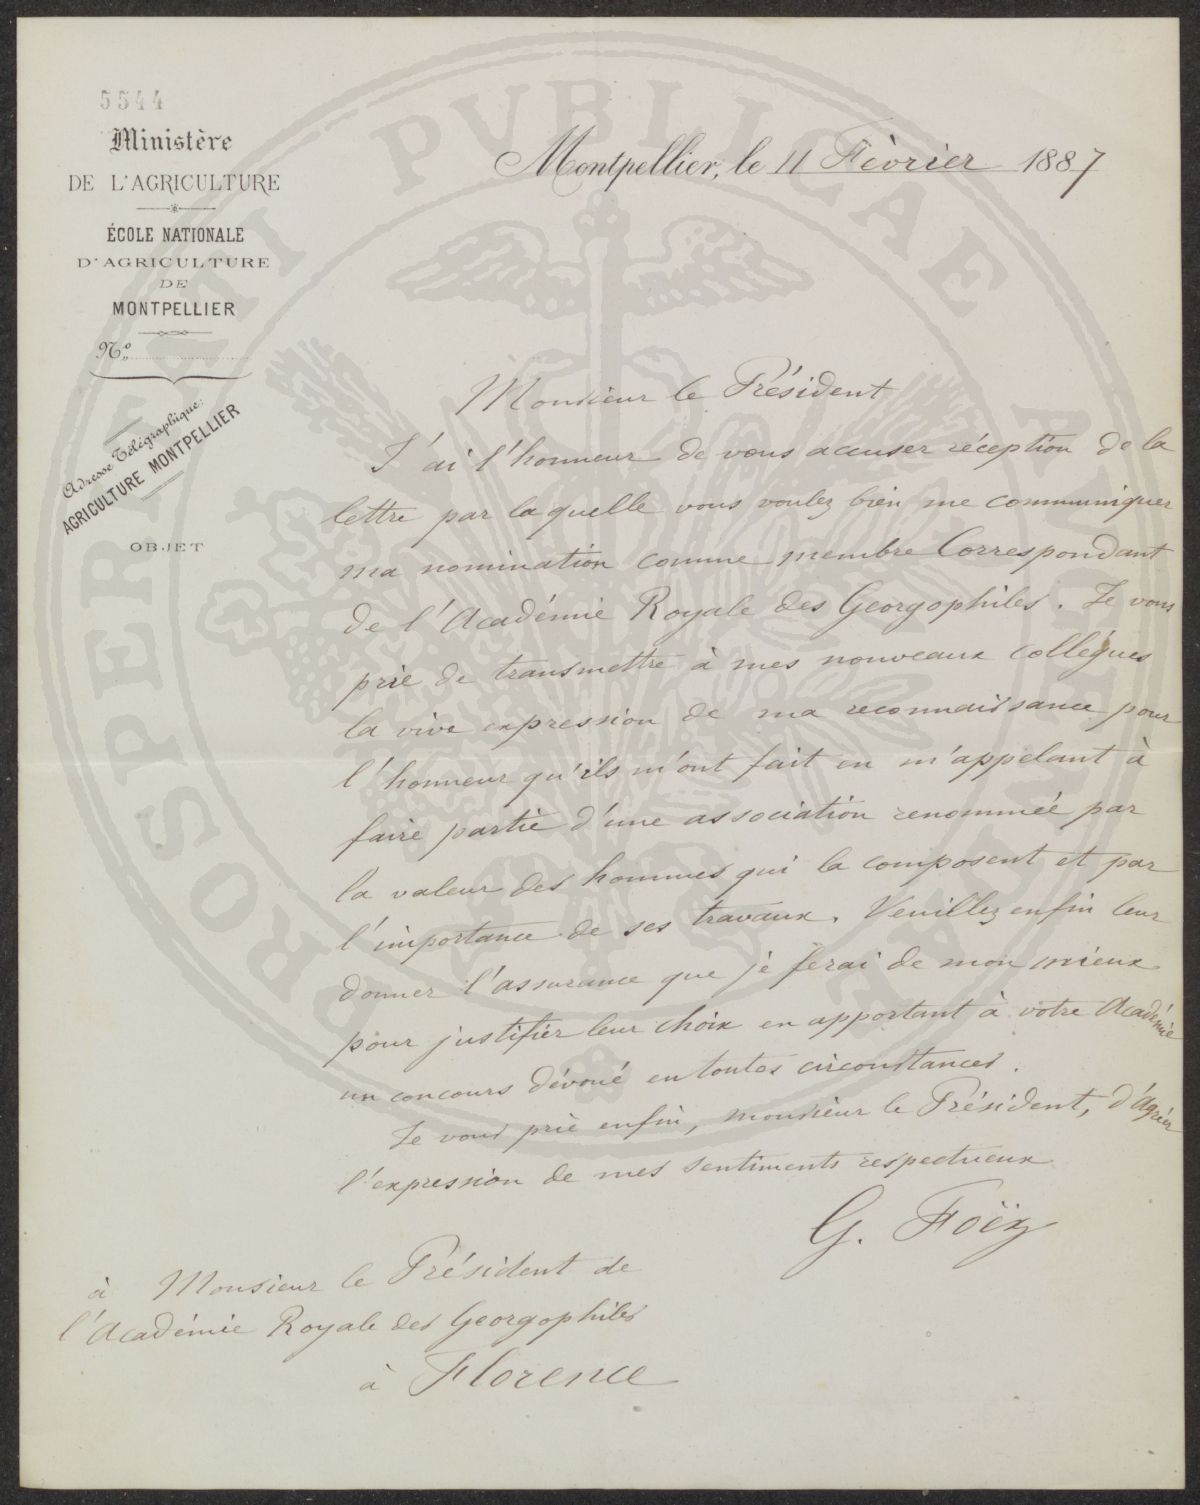 5544
Ministère
DE L'AGRICULTURE
ÉCOLE NATIONALE
D'AGRICULTURE
DE
MONTPELLIER
No.
Adresse Télégraphique:
AGRICULTURE MONTPELLIER
OBJET
Montpellier, le 11 Février 1887
Monsieur le Président
J'ai l'honneur de vous accuser réception de la
lettre par laquelle vous voulez bien me communiquer
ma nomination comme membre Correspondant
de l'Académie Royale des Georgophiles. Je vous
prie de transmettre à mes nouveaux collègues
la vive expression de ma reconnaissance pour
l'honneur qu'ils m'ont fait en m'appelant à
faire partie d'une association renommée par
la valeur des hommes qui la composent et par
l'importance de ses travaux. Veuillez enfin leur
donner l'assurance que je ferai de mon mieux
pour justifier leur choix en apportant à votre Académie
un concours dévoué en toutes circonstances.
Je vous prie enfin, monsieur le Président, d'Agréer
l'expression de mes sentiments respectueux
G. Foëx
à Monsieur le Président de
l'Académie Royale des Georgophiles
à Florence
PROSPERITATI PUBLICAE AUGENDAE